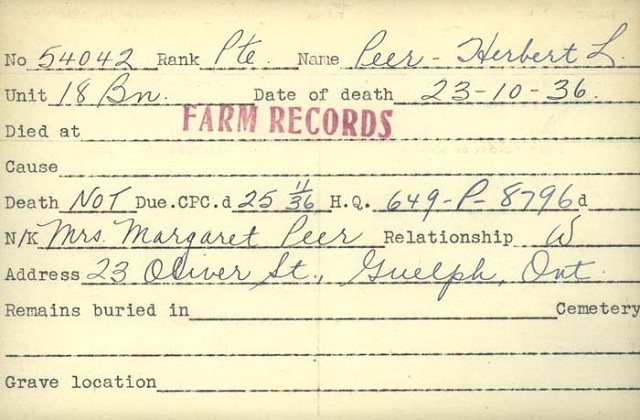 No 54042 Rank Pte. Name Peer - Herbert L.
Unit 18 Bn. Date of death 23-10-36.
Died at FARM RECORDS
Cause
Death NOT Due.CPC.d 25 11/36 H.Q. 649-P-8796 d
N/K Mrs. Margaret Peer Relationship W
Address 23 Oliver St., Guelph, Ont.
Remains buried in Cemetery
Grave location